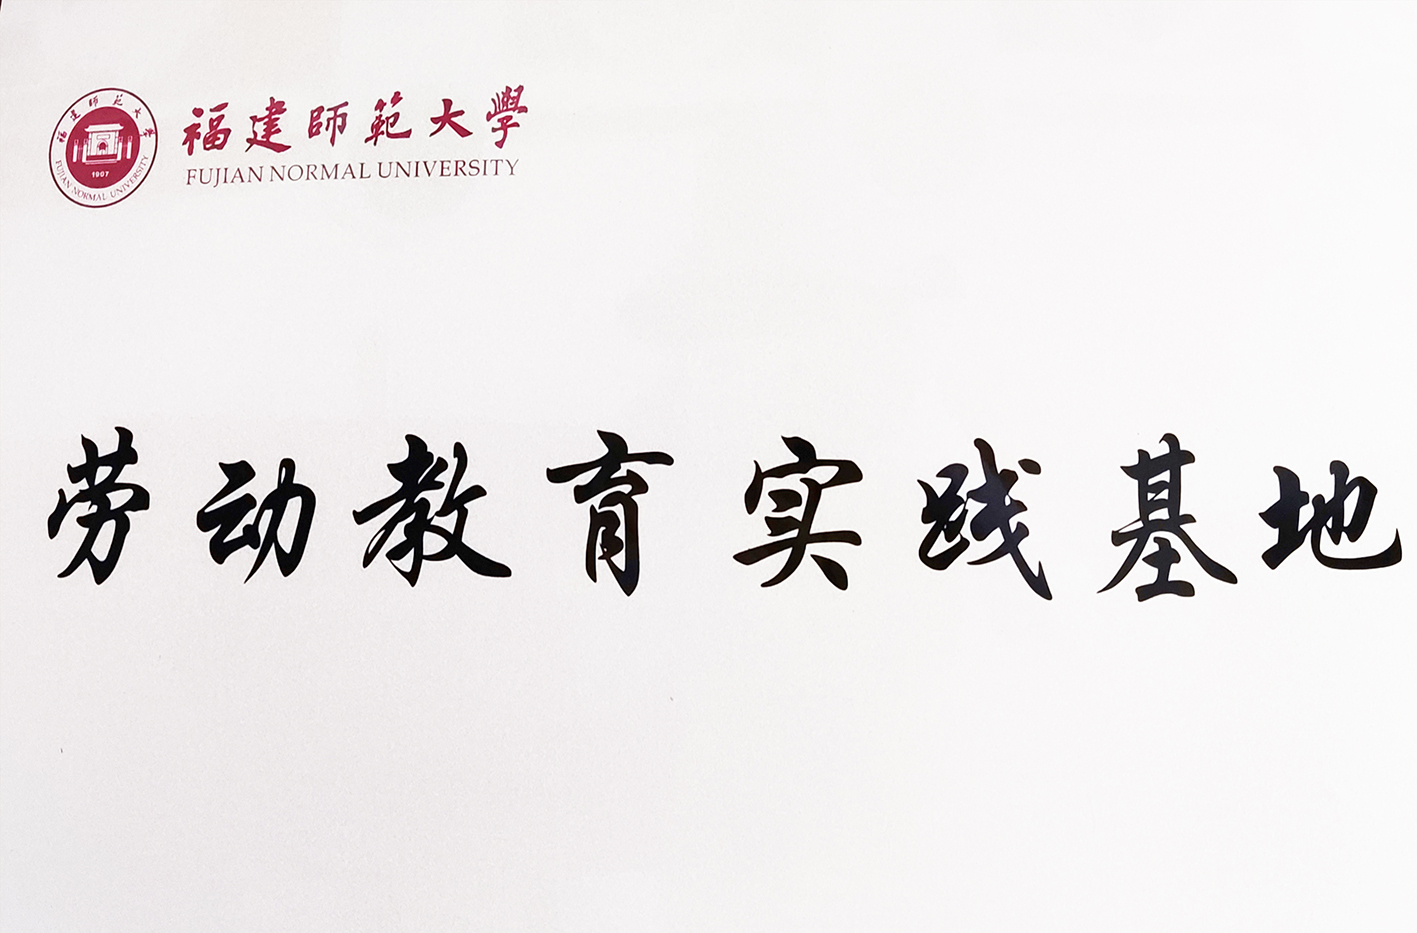 福建師範大學
FUJIAN NORMAL UNIVERSITY
1907
福建師範大學
FUJIAN NORMAL UNIVERSITY
劳动教育实践基地